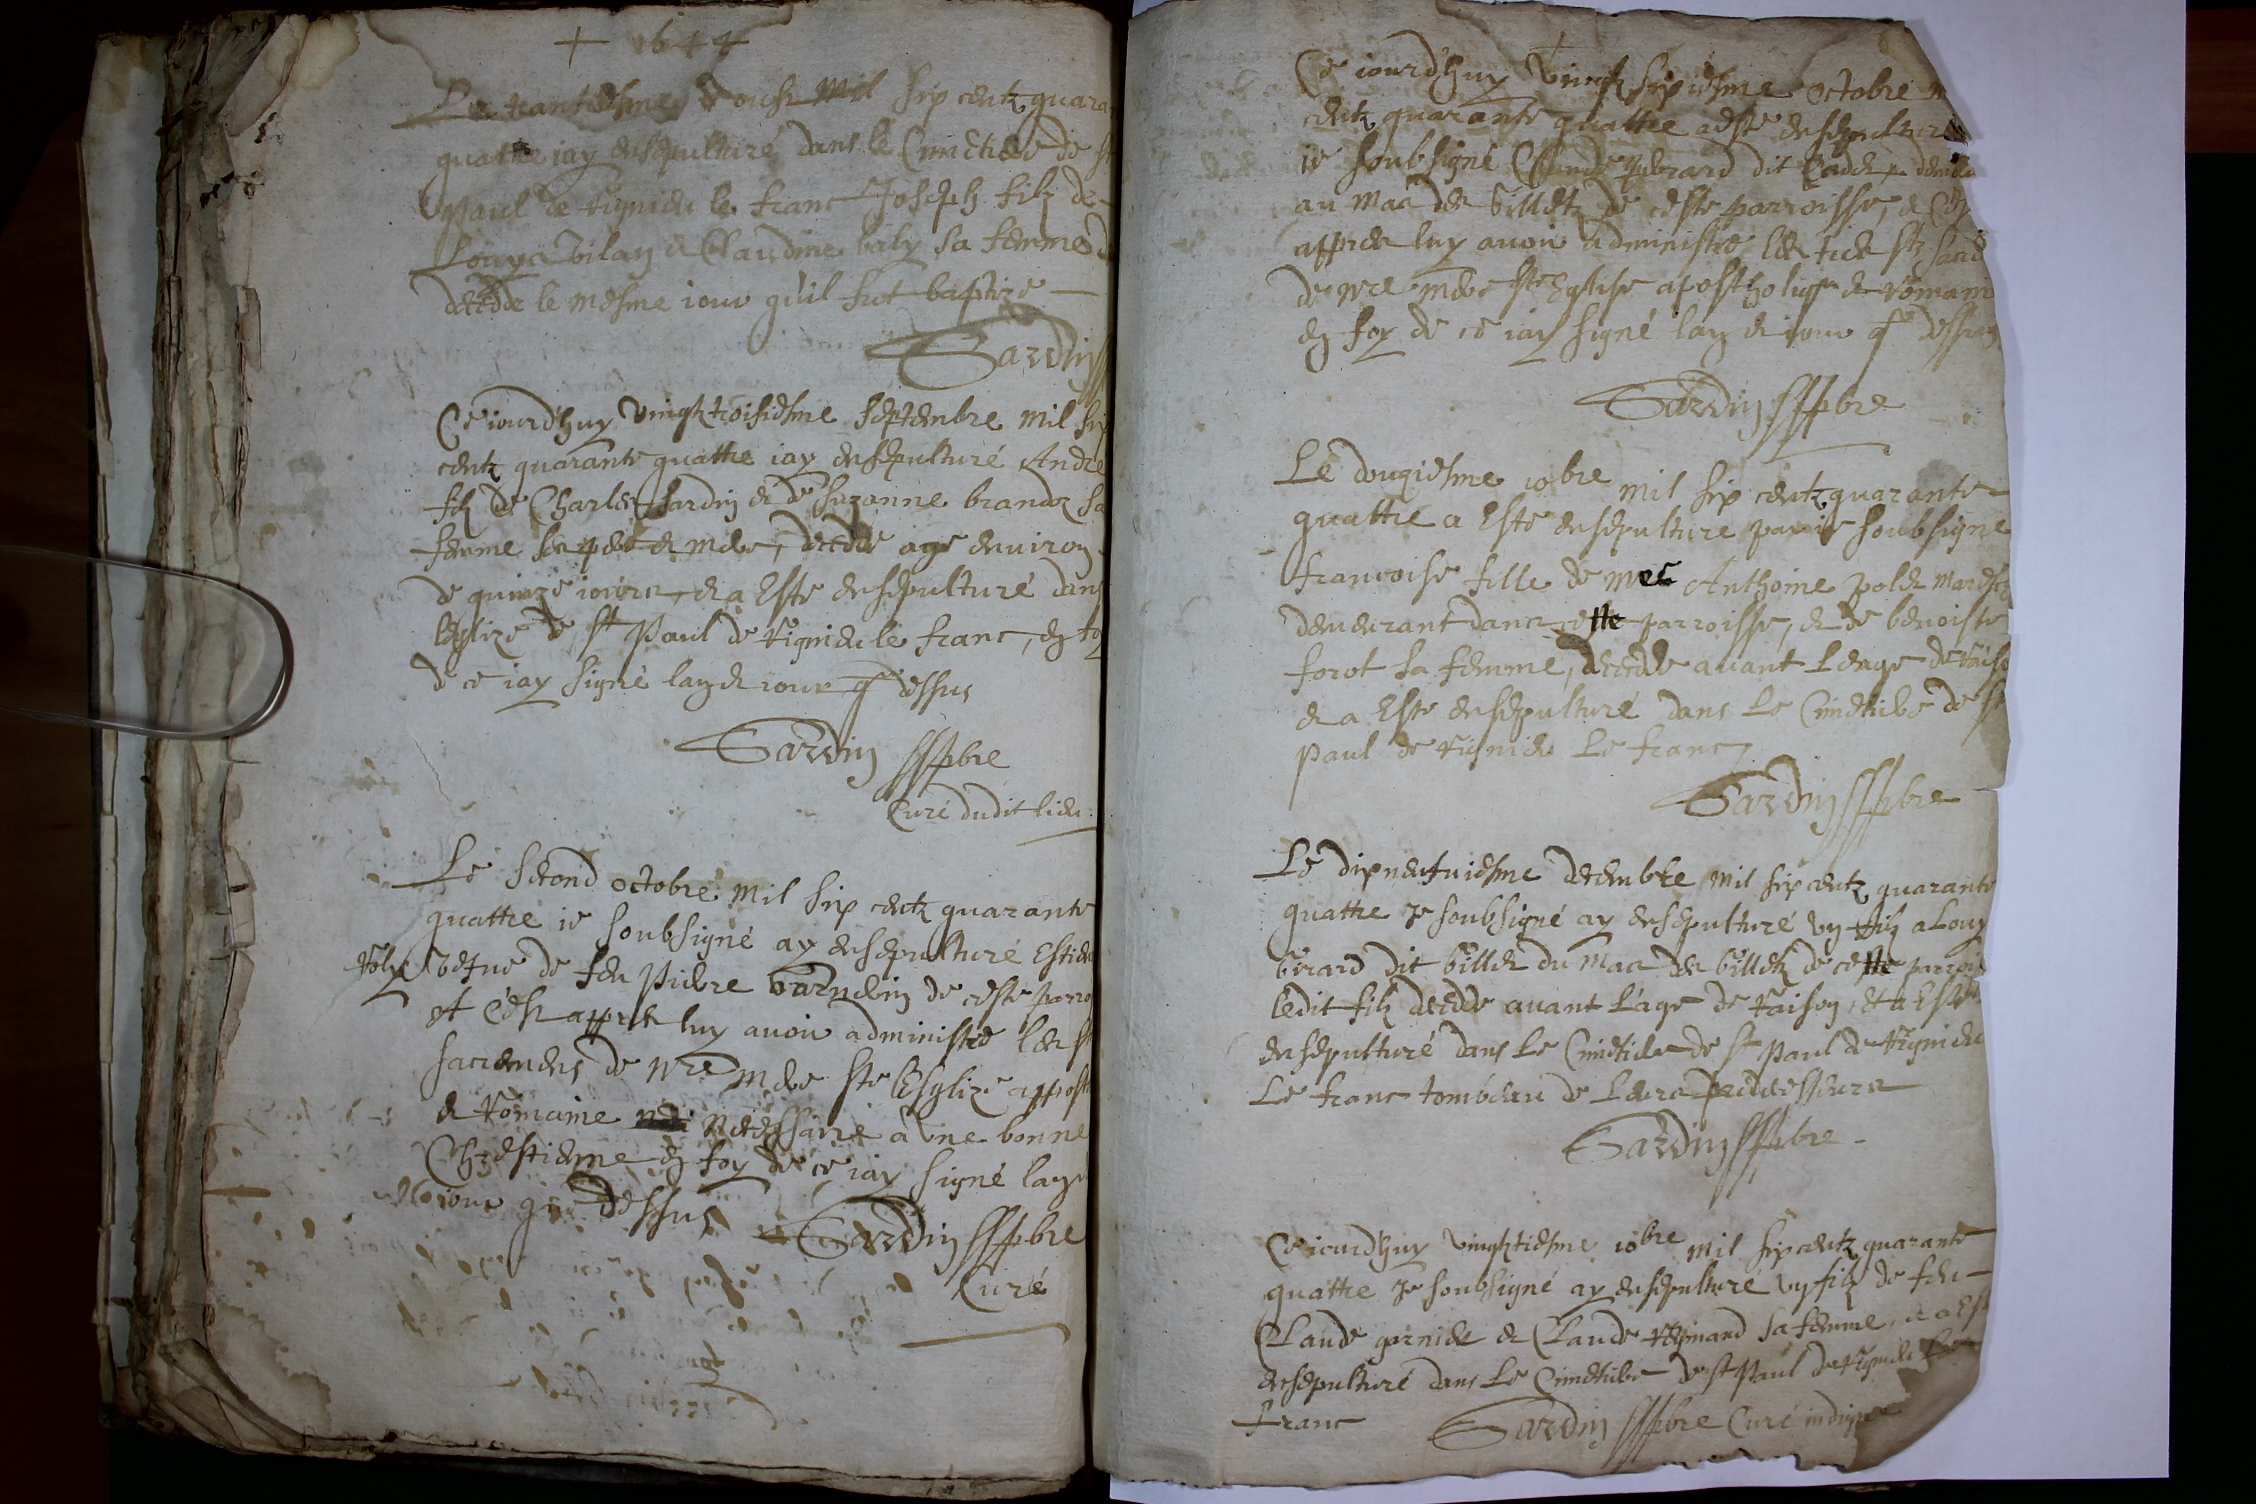 + 1644
Le trantiesme d'oust mil six centz quara
quattre iay ensepulturé dans le Cimetiere de St
Paul de Rignieu le franc Joseph filz de
Louys Vilan & Claudine baly sa femme
decede le mesme iour qu'il fut baptize
Sardin
Ce iourd'huy vingtz troisiesme septembre mil six
centz quarante quattre iay ensepulturé André
filz de Charles Sardin & de Suzanne brandz sa
femme ses pere & mere, decede age denviron
de quinze iours, & a Esté ensepulturé dans
leglize de St Paul de Rignieu le franc, en foy
de ce iay signé lan & iour q dessus
Sardin ssspbre
Curé dudit lieu
Le second octobre mil six centz quarante
quattre ie soubsigné ay ensepulturé Estien
vefve de feu Pierre de ceste parro
et C'est appres luy avoir administré les st
sacremens de nre mere ste Esglize appost
& Romaine necessaire a une bonne
Chrestienne en foy de ce iay signé lan
& iour que dessus
Sardin ssspbre
Curé
Ce iourd'huy vingtz sixiesme octobre m
centz quarante quattre a esté ensepulturé
ie soubsigné Claude Yverard dit Cadet
au Mas des billetz de ceste parroisse, & C'est
appres luy avoir administré les trois stz sacre
de nre mere ste Eglise apostholiqe & Romain
en foy de ce iay signé lan & iour q dessus
Sardin ssspbre
Le douziesme 10bre mil six centz quarante
quattre a Esté ensepulture par ie soubsigné
francoise fille de mre Anthoine polet
demeurant dans cette parroisse, & de benoiste
forot sa femme, decede avant Leage de raiso
& a Esté ensepulturé dans Le Cimetiere de St
Paul de Rignieu Le franc
Sardin ssspbre
Le dixneufviesme decembre mil six centz quarante
quattre Je soubsigné ay ensepulturé un filz a Louy
berard dit billet du Mas des billetz de cette parrois
ledit filz decede avant L'age de Raison, et a Esté
ensepulturé dans Le Cimetiere de St Paul de Rignieu
Le franc tombeau de Leurs predecesseurs
Sardin ssspbre
Ce iourd'huy vingtztiesme 10bre mil six centz quarante
quattre Je soubsigné ay ensepulturé un filz de feu
Claude garnier & Claude Reymand sa femme, & a Est
ensepulturé dans Le Cimetiere de St Paul de Rignieu Le
franc Sardin ssspbre Curé indigne